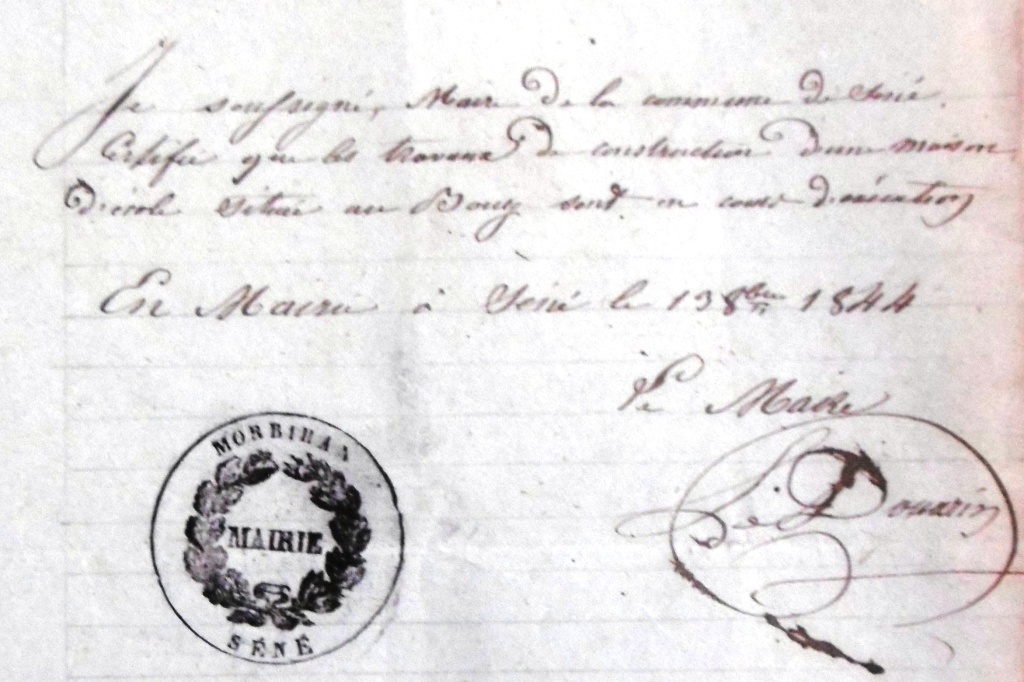 Je soussigné, Maire de la commune de Séné,
Certifie que les travaux de construction d'une maison
d'école située au Bourg sont en cours d'exécution
En Mairie à Séné le 13 8bre 1844
Le Maire
Le Douarin
MORBIHAN
MAIRIE
SÉNÉ